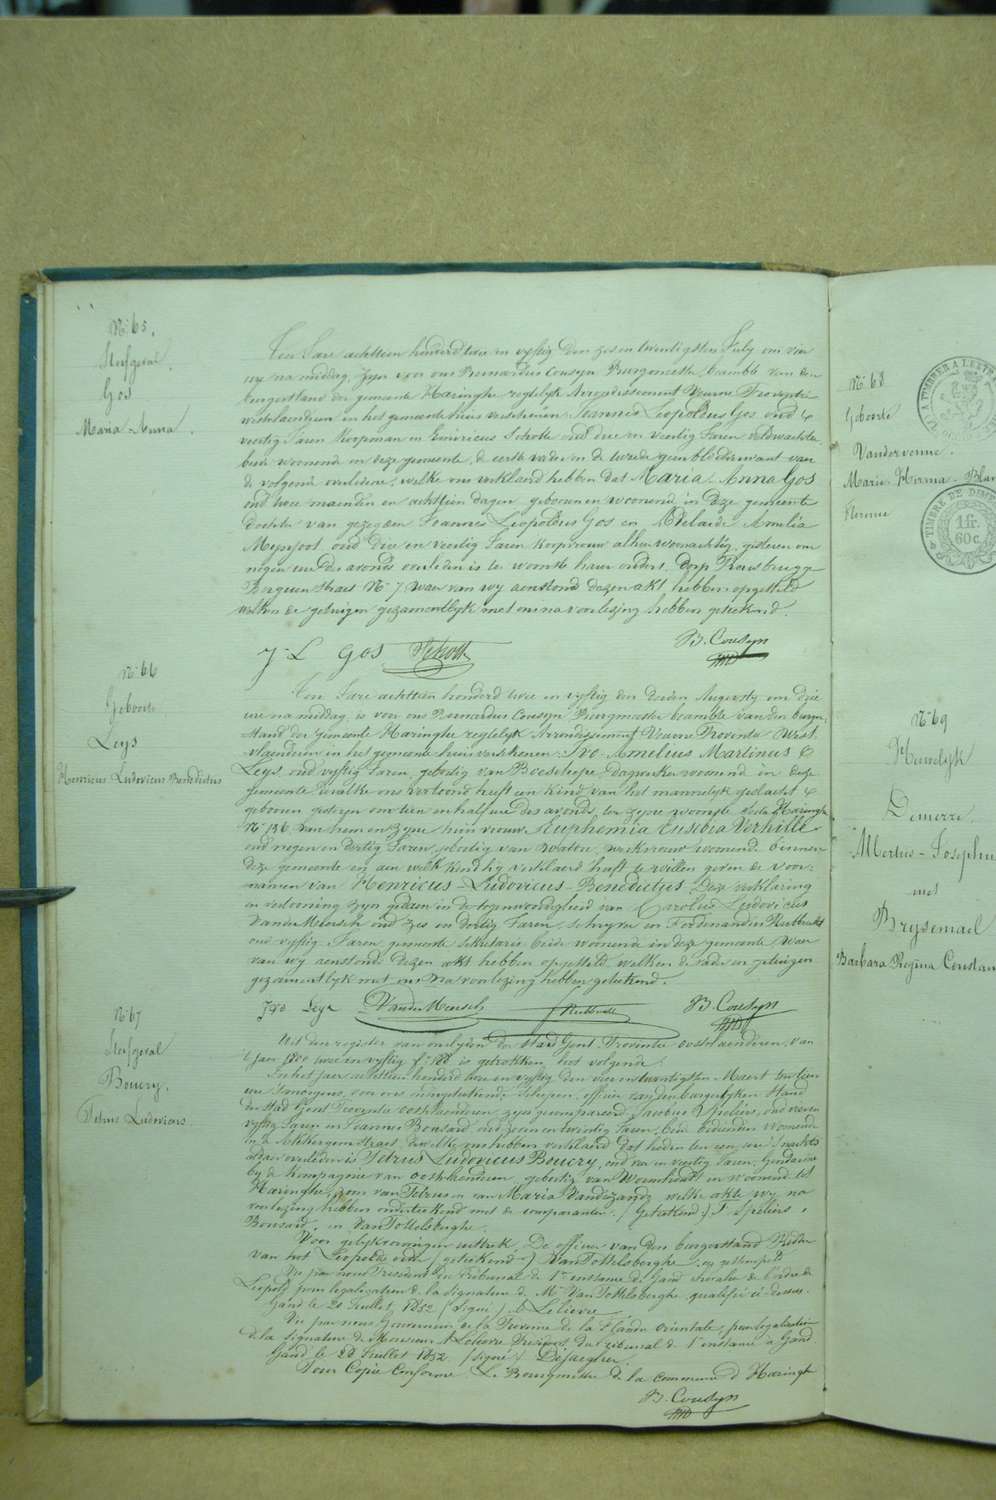 N° 65.
Sterfgeval
Gos
Maria Anna.
Ten Jare achttien honderd twee en vyftig den zes en twintigsten July om vier
ure na middag, zyn voor ons Bernardus Cousyn Burgomeester beambte van den
burgerstand der gemeente Haringhe regtelyk Arrondissement Veurne Provintie
Westvlaenderen in het gemeente huis verschenen Joannes Leopoldus Gos oud
veertig Jaren Koopman en Henricus Schotte oud drie en veertig Jaren Veldwachter
beide woonende in deze gemeente, de eerste vader en de tweede geen bloedverwant van
de volgende overledene, welke ons verklaerd hebben dat Maria Anna Gos
oud twee maenden en achttien dagen geboren en woonende in deze gemeente
dochter van gezegden Joannes Leopoldus Gos en Adelaide Amelia
oud drie en veertig Jaren koopvrouw alhier woonachtig, gisteren om
negen ure des avonds overleden is te woonste haer ouders, dorp Rousbrugge
Berguen straet N° 7 waer van wy aenstonds dezen akt hebben opgesteld
welken de getuigen gezamentlyk met ons na voorlezing hebben geteekend.
J. L Gos Schotte B. Cousyn
N° 66
Geboorte
Leys
Henricus Ludovicus Benedictus
Ten Jare achttien honderd twee en vyftig den tweeden Augusty om drie
ure na middag is voor ons Bernardus Cousyn Burgmeester beambte van den burger
stand der gemeente Haringhe regtelyk Arrondissement Veurne Provintie West
vlaenderen in het gemeente huis verschenen Ivo Amelius Martinus
Leys oud vyftig Jaren, geboortig van Boeschepe dagwerker woonende in deze
gemeente, welke ons vertoond heeft een kind van het mannelyk geslacht
geboren gisteren om tien en half ure des avonds, ten zyne woonste Haringhe
N° 136 van hem en zyne huisvrouw Euphemia Eusebia Verhille
oud negen en dertig Jaren, geboortig van Watou, werkvrouw woonende binnen
deze gemeente en aen welk kind hy verklaerd heeft te willen geven de voor-
namen van Henricus-Ludovicus-Benedictus Deze verklaring
en vertooning zyn gedaen in de tegenwoordigheid van Carolus Ludovicus
Vander Meersch oud zes en dertig Jaren, schryver en Ferdinandus Rubbrecht
oud vyftig Jaren gemeente sekretaris beide woonende in deze gemeente, waer
van wy aenstonds dezen akt hebben opgesteld welken de vader en getuigen
gezamentlyk met ons na voorlezing hebben geteekend.
Ivo Leys VanderMeersch f. Rubbrecht B. Cousyn
N° 67
Sterfgeval
Boucry.
Petrus Ludovicus
Uit den register van overlyden der stad Gent Provintie Oostvlaenderen, van
't jaer 1800 twee en vyftig is getrokken, het volgende.
In het jaer achttien honderd twee en vyftig den vier en twintigsten Maert ten tien
ure 's morgens, voor ons ondergeteekende schepen, officier van den burgerlyken stand
der stad Gent Provintie Oostvlaenderen, zyn gecompareerd Jacobus Speliers, oud
vyftig Jaren en Joannes Bousard oud zeven en twintig Jaren, beide bedienden woonende
in de straet, dewelke ons hebben verklaerd dat heden ten een ure 's nachts
alhier overleden is Petrus Ludovicus Boucry, oud vier en veertig Jaren, Gendarme
by de Kompagnie van Oostvlaenderen, geboortig van Wormhoudt en woonende tot
Haringhe, zoon van Petrus en van Maria Vandezande welke akte wy na
voorlezing hebben onderteekend met de comparanten. (Geteekend) J. Speliers,
Bousard, en Van Tottelberghe.
Voor gelykvormigen uittrek, De officier van den burgerstand Ridder
van het Leopolds orde (geteekend) Van Tottelberghe
Vu par nous President du Tribunal de 1re instance de Gand chevalier de l'ordre de
Leopold pour legalisation de la signature de Mr Van Tottelberghe qualifié ci dessus.
Gand le 20 Juillet 1852 (Signé) Lelievre
Vu par nous Gouverneur de la Province de la Flandre orientale, pour legalisation
de la signature de Monsieur Lelievre President du tribunal de 1re instance a Gand
Gand le 22 Juillet 1852. (signé)
Pour Copie Conforme. Le Bourgmestre de la commune d Haringhe
B. Cousyn
N° 68
Geboorte
Vandevenne.
Marie Herma
Florence
TIMBRE DE DIMENSION
1 fr.
60c.
N° 69
Huwelyk
Demerre.
met
Brysemael
Barbara Regina Constan